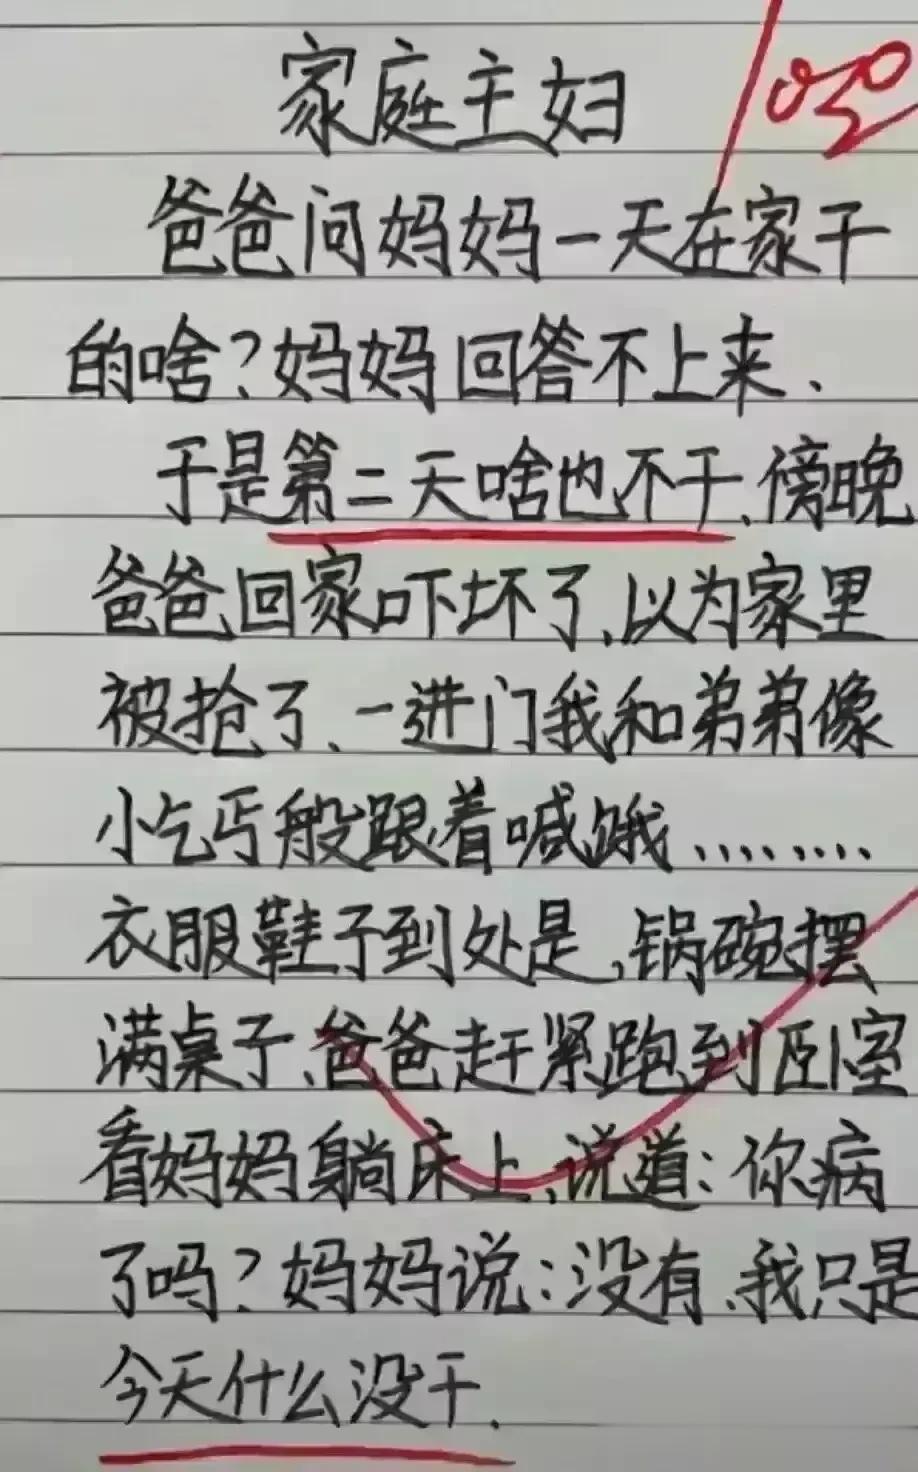 家庭主妇
100
爸爸问妈妈一天在家干
的啥?妈妈回答不上来、
于是第二天啥也不干、傍晚
爸爸回家吓坏了、以为家里
被抢了、一进门我和弟弟像
小乞丐般跟着喊饿………
衣服鞋子到处是、锅碗摆
满桌子、爸爸赶紧跑到卧室
看妈妈躺床上、说道:你病
了吗?妈妈说:没有、我只是
今天什么没干、